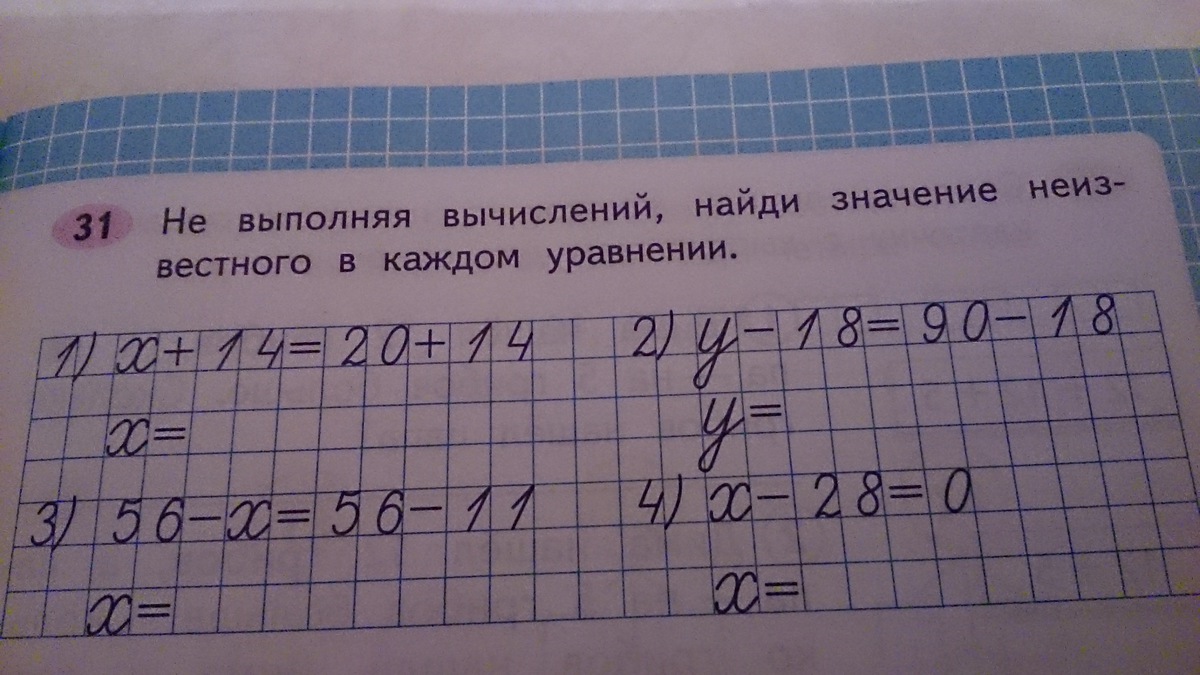 31 Не выполняя вычислений, найди значение неиз-
вестного в каждом уравнении.
1) x+14=20+14
x=
2) y-18=90-18
y=
3) 56-x=56-11
x=
4) x-28=0
x=